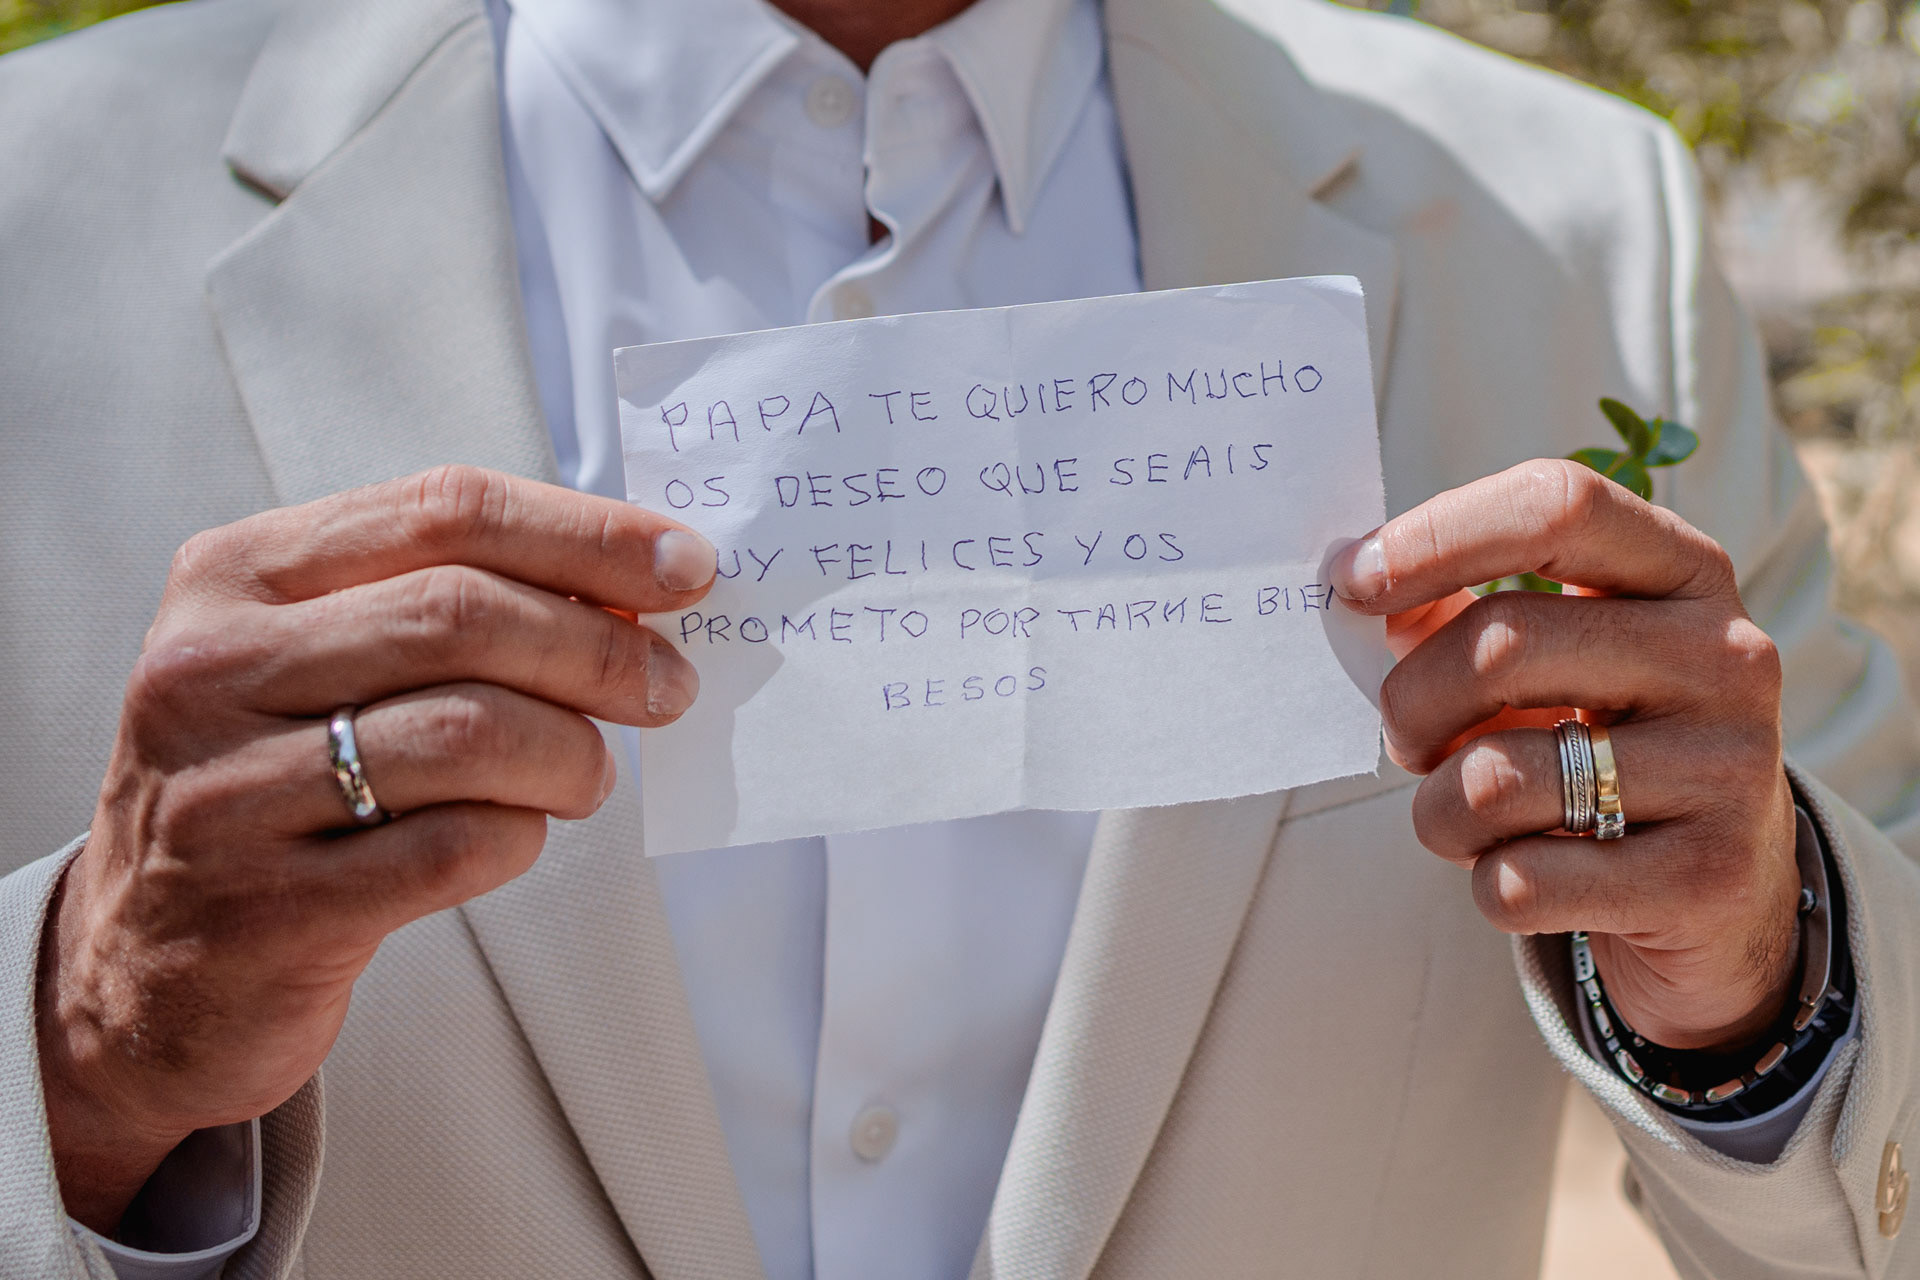 PAPA TE QUIERO MUCHO
OS DESEO QUE SEAIS
UY FELICES Y OS
PROMETO PORTARME BIEN
BESOS